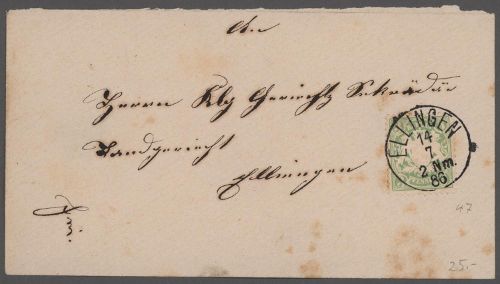 An
Herrn Klg Gerichts Sekretär
Landgericht
Ellingen
ELLINGEN
14
7
2 Nm.
86
47
25.-